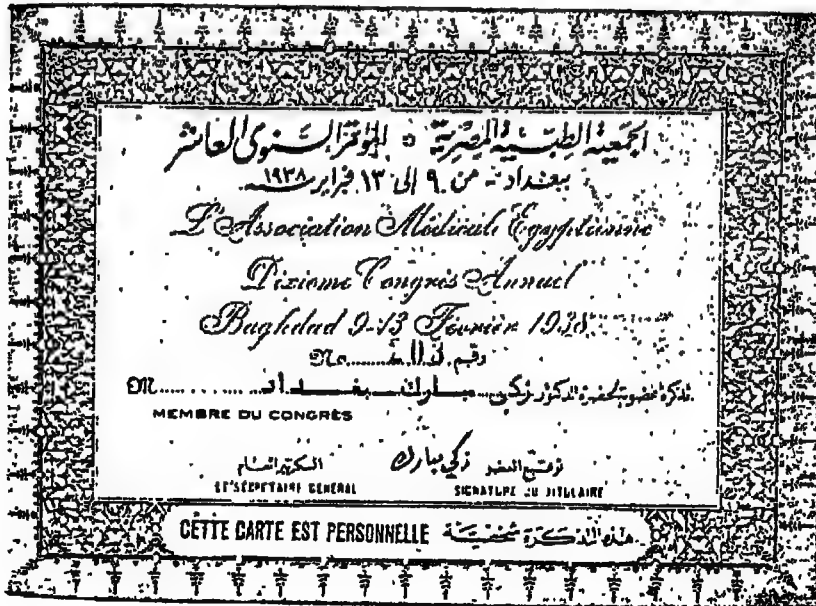 الجمعية الطبية المصرية * المؤتمر السنوي العاشر
ببغداد - من ٩ الى ١٣ فبراير سنه ١٩٣٨
L'Association Médicale Egyptienne
Dixième Congrès Annuel
Baghdad 9-13 Février 1938
رقم No
تذكرة عضوية لحضرة الدكتور زكي مبارك بغداد M
MEMBRE DU CONGRÈS
توقيع العضو زكي مبارك السكرتير العام
LE SECRETAIRE GENERAL SIGNATURE DU TITULAIRE
CETTE CARTE EST PERSONNELLE هذه التذكرة شخصية